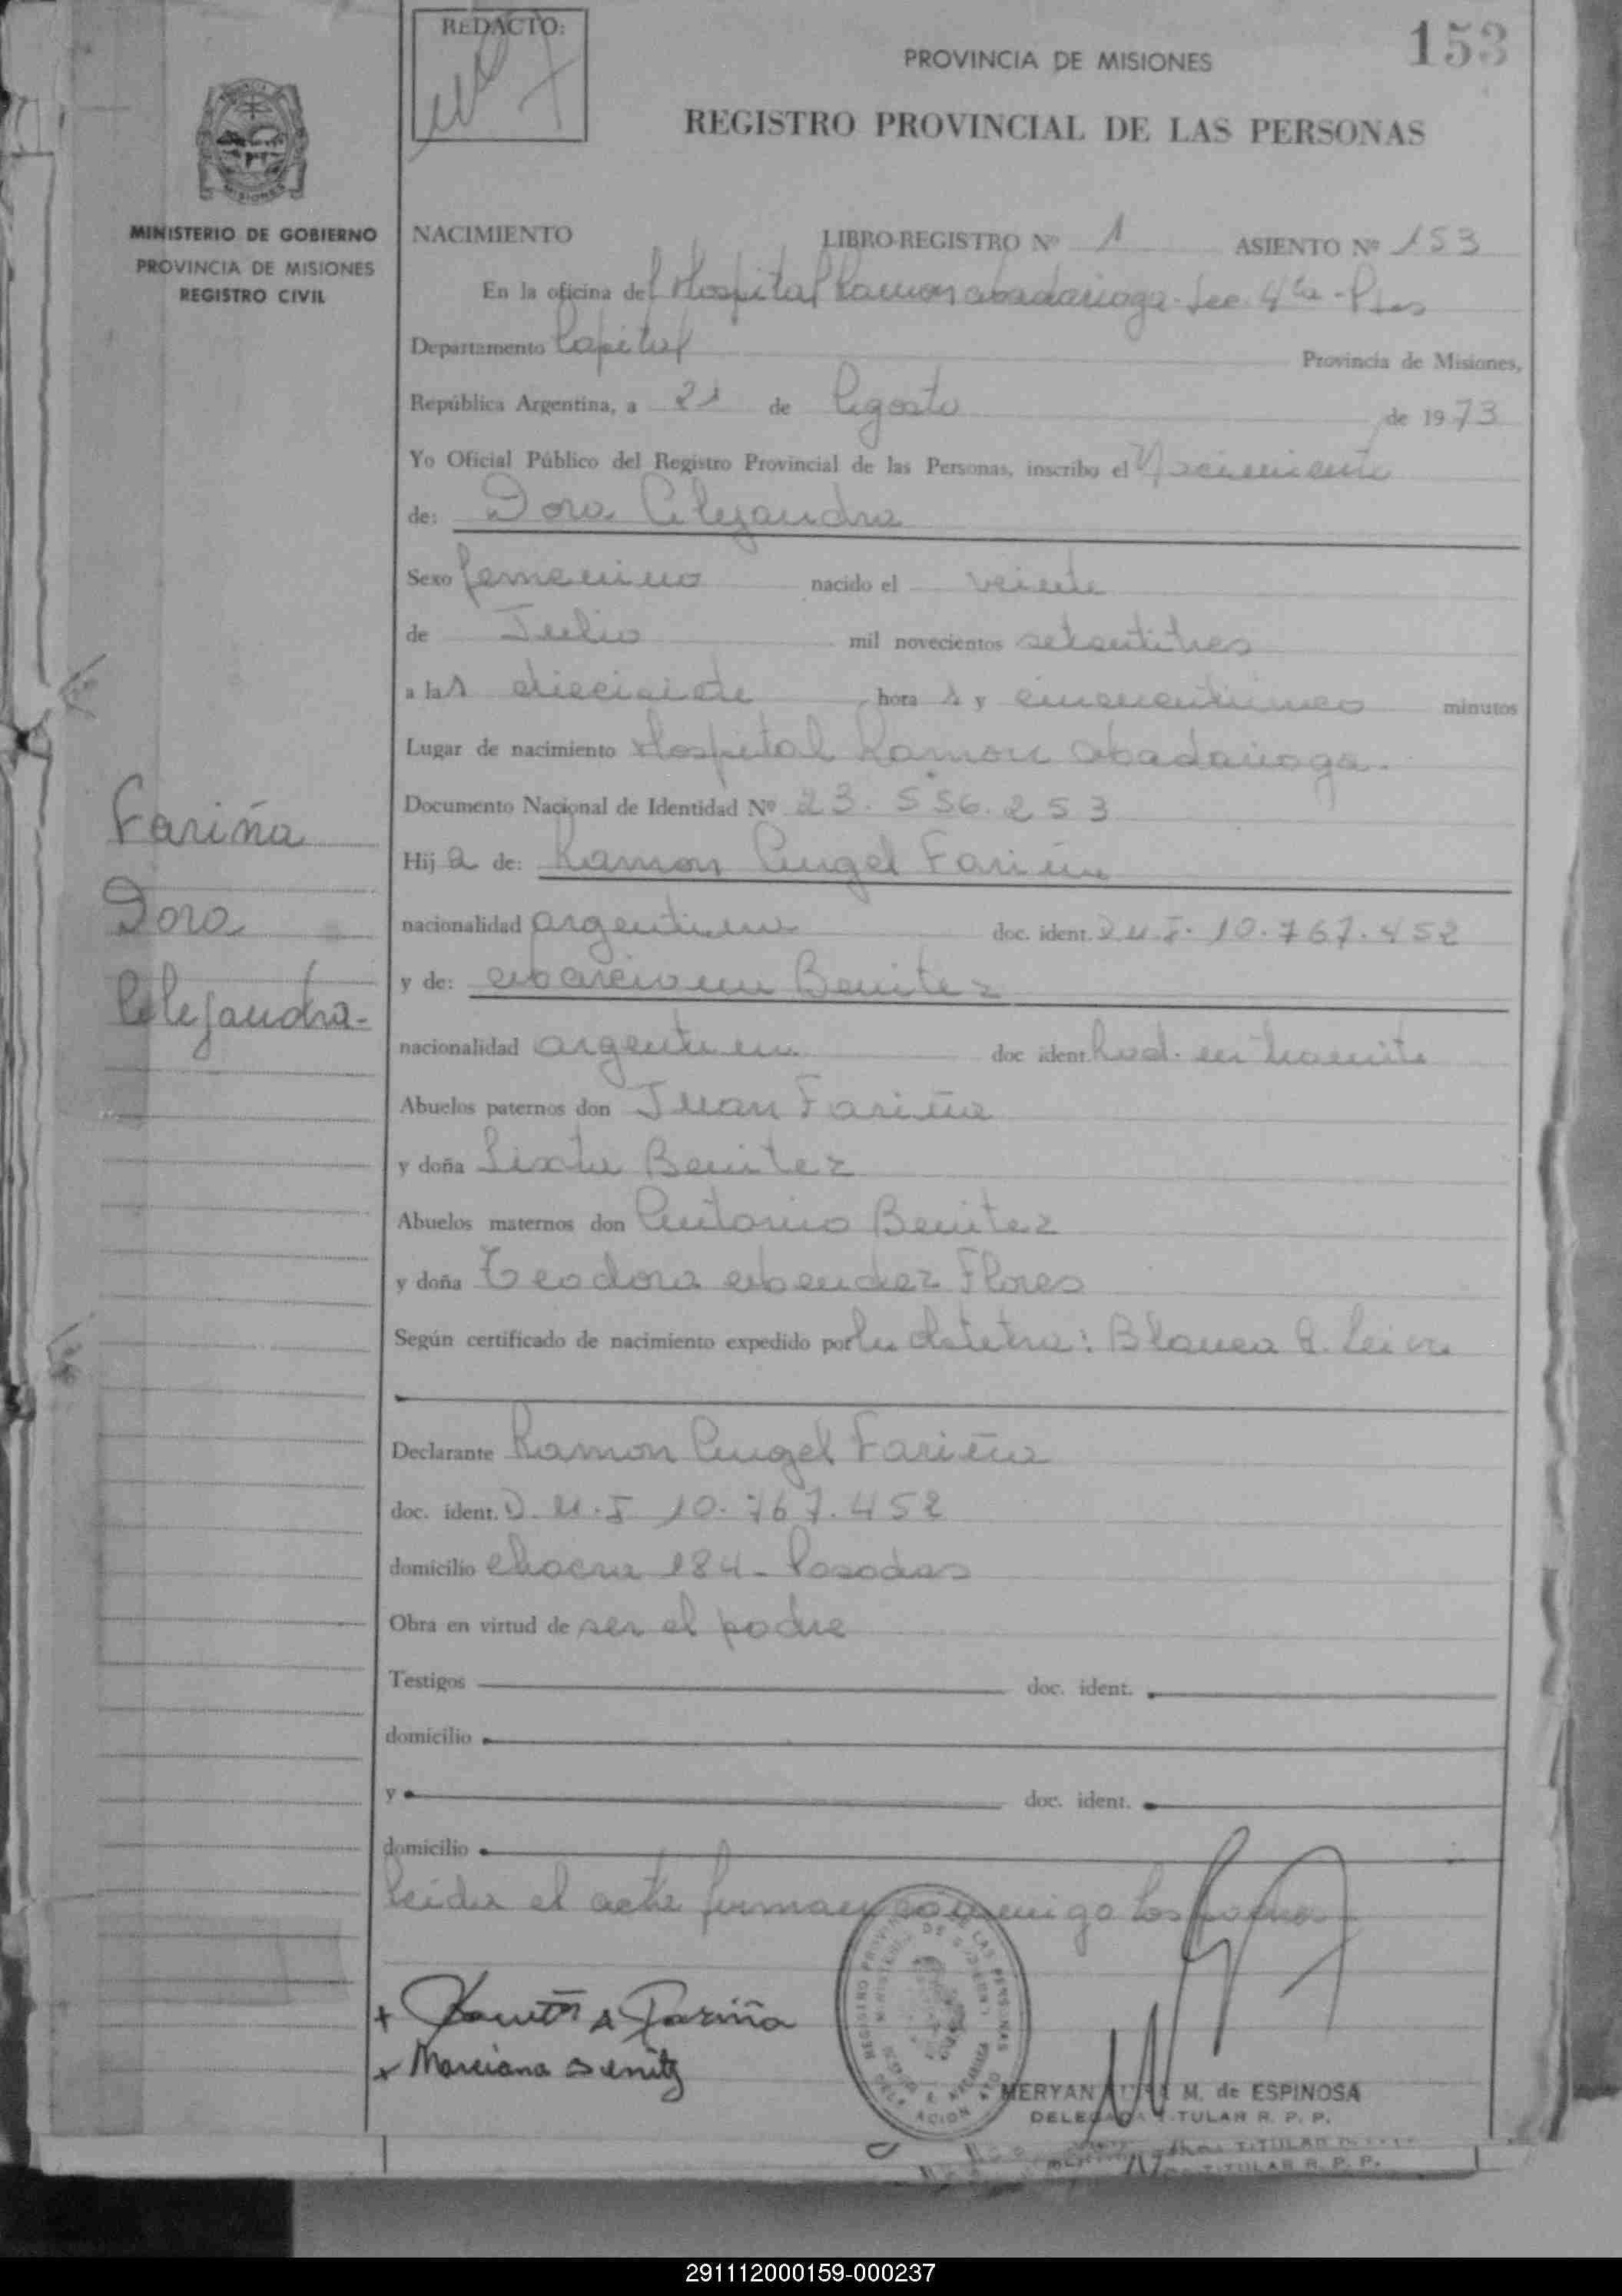 REDACTO:
153
PROVINCIA DE MISIONES
REGISTRO PROVINCIAL DE LAS PERSONAS
MISIONES
MINISTERIO DE GOBIERNO
PROVINCIA DE MISIONES
REGISTRO CIVIL
NACIMIENTO LIBRO-REGISTRO Nº 1 ASIENTO Nº 153
En la oficina del Hospital Ramon Madariaga - Sec. 4ta - Pdas
Departamento Capital Provincia de Misiones,
República Argentina, a 21 de Agosto de 1973
Yo Oficial Público del Registro Provincial de las Personas, inscribo el Nacimiento
de: Dora Alejandra
Sexo femenino nacido el veinte
de Julio mil novecientos setentitres
a las diecisiete hora s y cincuenticinco minutos
Lugar de nacimiento Hospital Ramon Madariaga.
Documento Nacional de Identidad Nº 23.556.253
Hija de: Ramon Angel Fariña
nacionalidad argentina doc. ident. D.N.I. 10.767.452
y de: Marciana Benitez
nacionalidad argentina doc ident. Rad. en tramite
Abuelos paternos don Juan Fariña
y doña Sixta Benitez
Abuelos maternos don Antonio Benitez
y doña Teodora Mendez Flores
Según certificado de nacimiento expedido por la obstetra: Blanca R. Leiva
Declarante Ramon Angel Fariña
doc. ident. D.N.I 10.767.452
domicilio chacra 184 - Posadas
Obra en virtud de ser el padre
Testigos doc. ident.
domicilio
y doc. ident.
domicilio
Leida el acta firman conmigo los padres
Fariña
Dora
Alejandra-
+ Ramón A Fariña
x Marciana Benitz
MERYAN M. de ESPINOSA
DELEGADA TITULAR R. P. P.
TITULAR
TITULAR R. P. P.
291112000159-000237